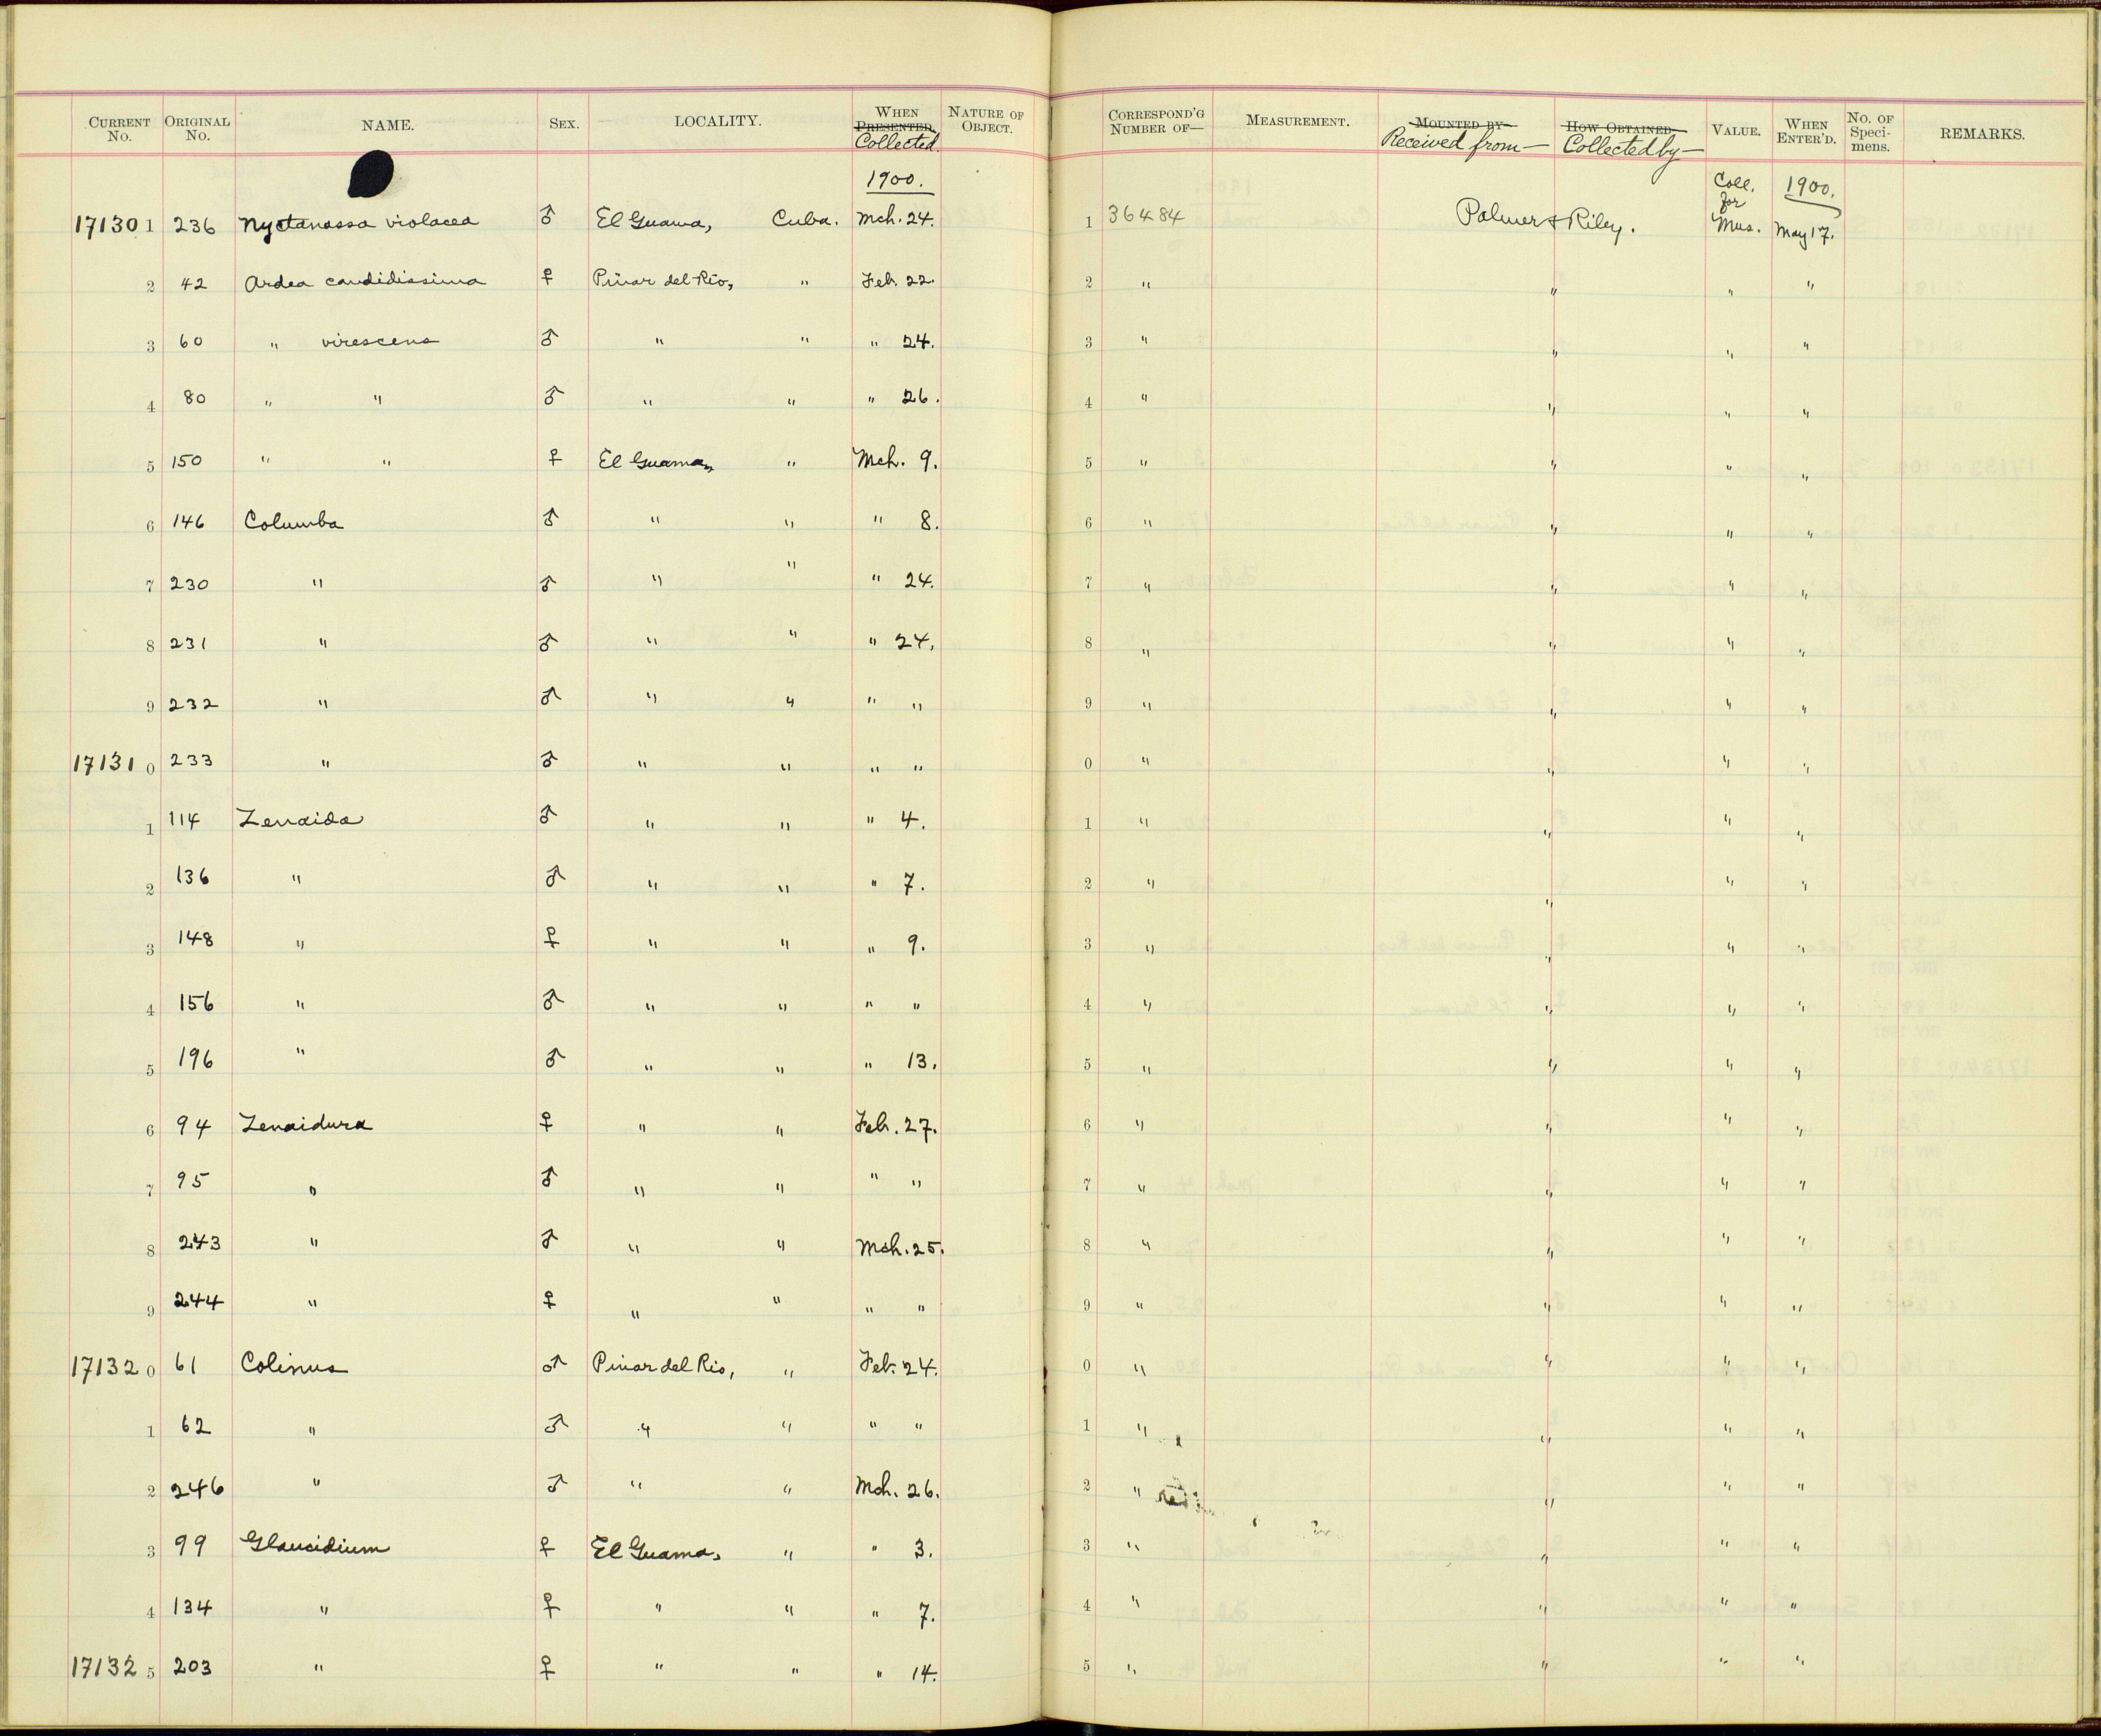 CURRENT No. ORIGINAL No. NAME. SEX. LOCALITY. WHEN PRESENTED Collected. NATURE OF OBJECT. CORRESPOND'G NUMBER OF— MEASUREMENT. MOUNTED BY— Received from— HOW OBTAINED Collected by— VALUE. WHEN ENTER'D. No. OF Speci-mens. REMARKS.
1900. Coll. for 1900.
17130 1 236 Nyctanassa violacea ♂ El Guama, Cuba. Mch. 24. 1 36484 Palmer & Riley. Mus. May 17.
2 42 Ardea candidissima ♀ Pinar del Rio, " Feb. 22. 2 " " " "
3 60 " virescens ♂ " " " 24. 3 " " " "
4 80 " " ♂ " " " 26. 4 " " " "
5 150 " " ♀ El Guama, " Mch. 9. 5 " " " "
6 146 Columba ♂ " " " 8. 6 " " " "
7 230 " ♂ " " " 24. 7 " " " "
8 231 " ♂ " " " 24. 8 " " " "
9 232 " ♂ " " " " 9 " " " "
17131 0 233 " ♂ " " " " 0 " " " "
1 114 Zenaida ♂ " " " 4. 1 " " " "
2 136 " ♂ " " " 7. 2 " " " "
3 148 " ♀ " " " 9. 3 " " " "
4 156 " ♂ " " " " 4 " " " "
5 196 " ♂ " " " 13. 5 " " " "
6 94 Zenaidura ♀ " " Feb. 27. 6 " " " "
7 95 " ♂ " " " " 7 " " " "
8 243 " ♂ " " Mch. 25. 8 " " " "
9 244 " ♀ " " " " 9 " " " "
17132 0 61 Colinus ♂ Pinar del Rio, " Feb. 24. 0 " " " "
1 62 " ♂ " " " " 1 " " " "
2 246 " ♂ " " Mch. 26. 2 " " " "
3 99 Glaucidium ♀ El Guama, " " 3. 3 " " " "
4 134 " ♀ " " " 7. 4 " " " "
17132 5 203 " ♀ " " " 14. 5 " " " "